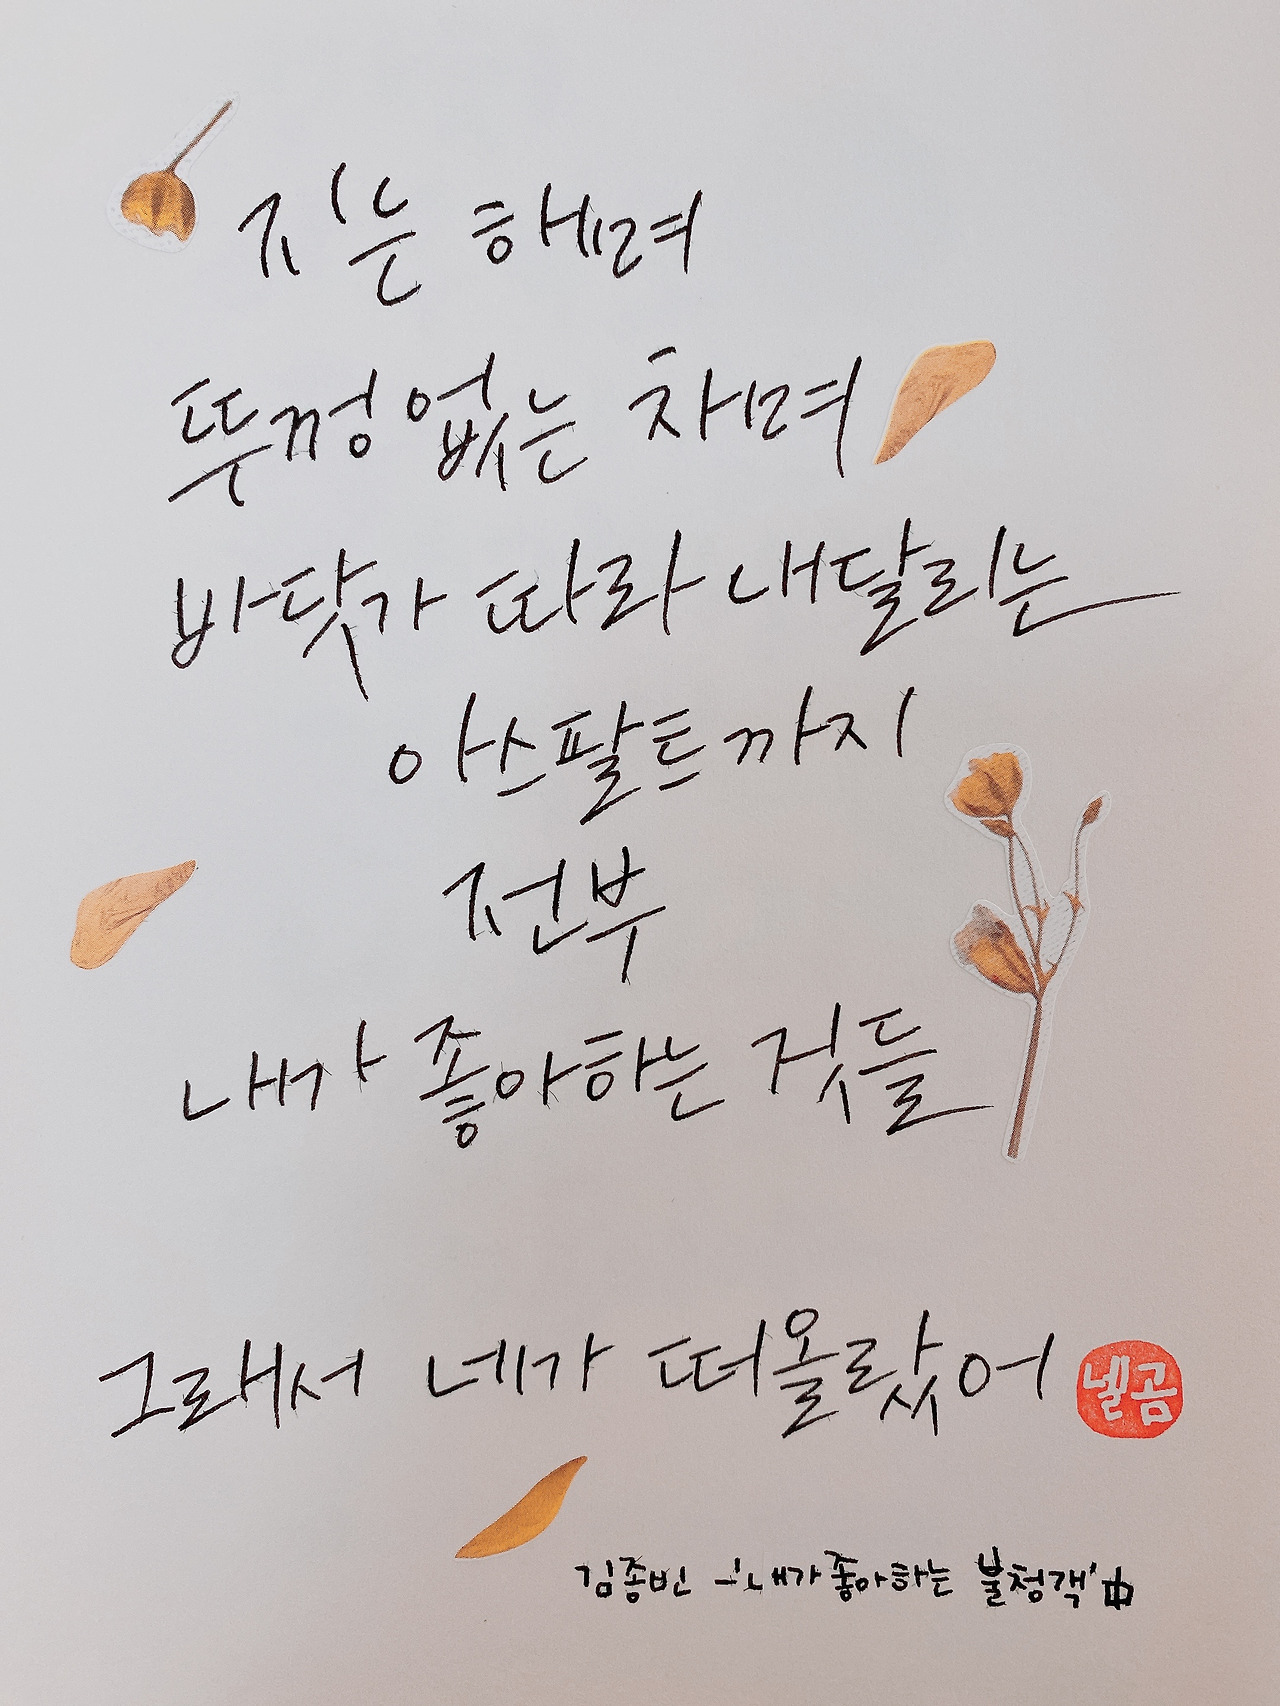 지는 해며
뚜껑 없는 차며
바닷가 따라 내달리는
아스팔트까지
전부
내가 좋아하는 것들
그래서 네가 떠올랐어
넬곰
김종빈 - '내가 좋아하는 불청객' 中